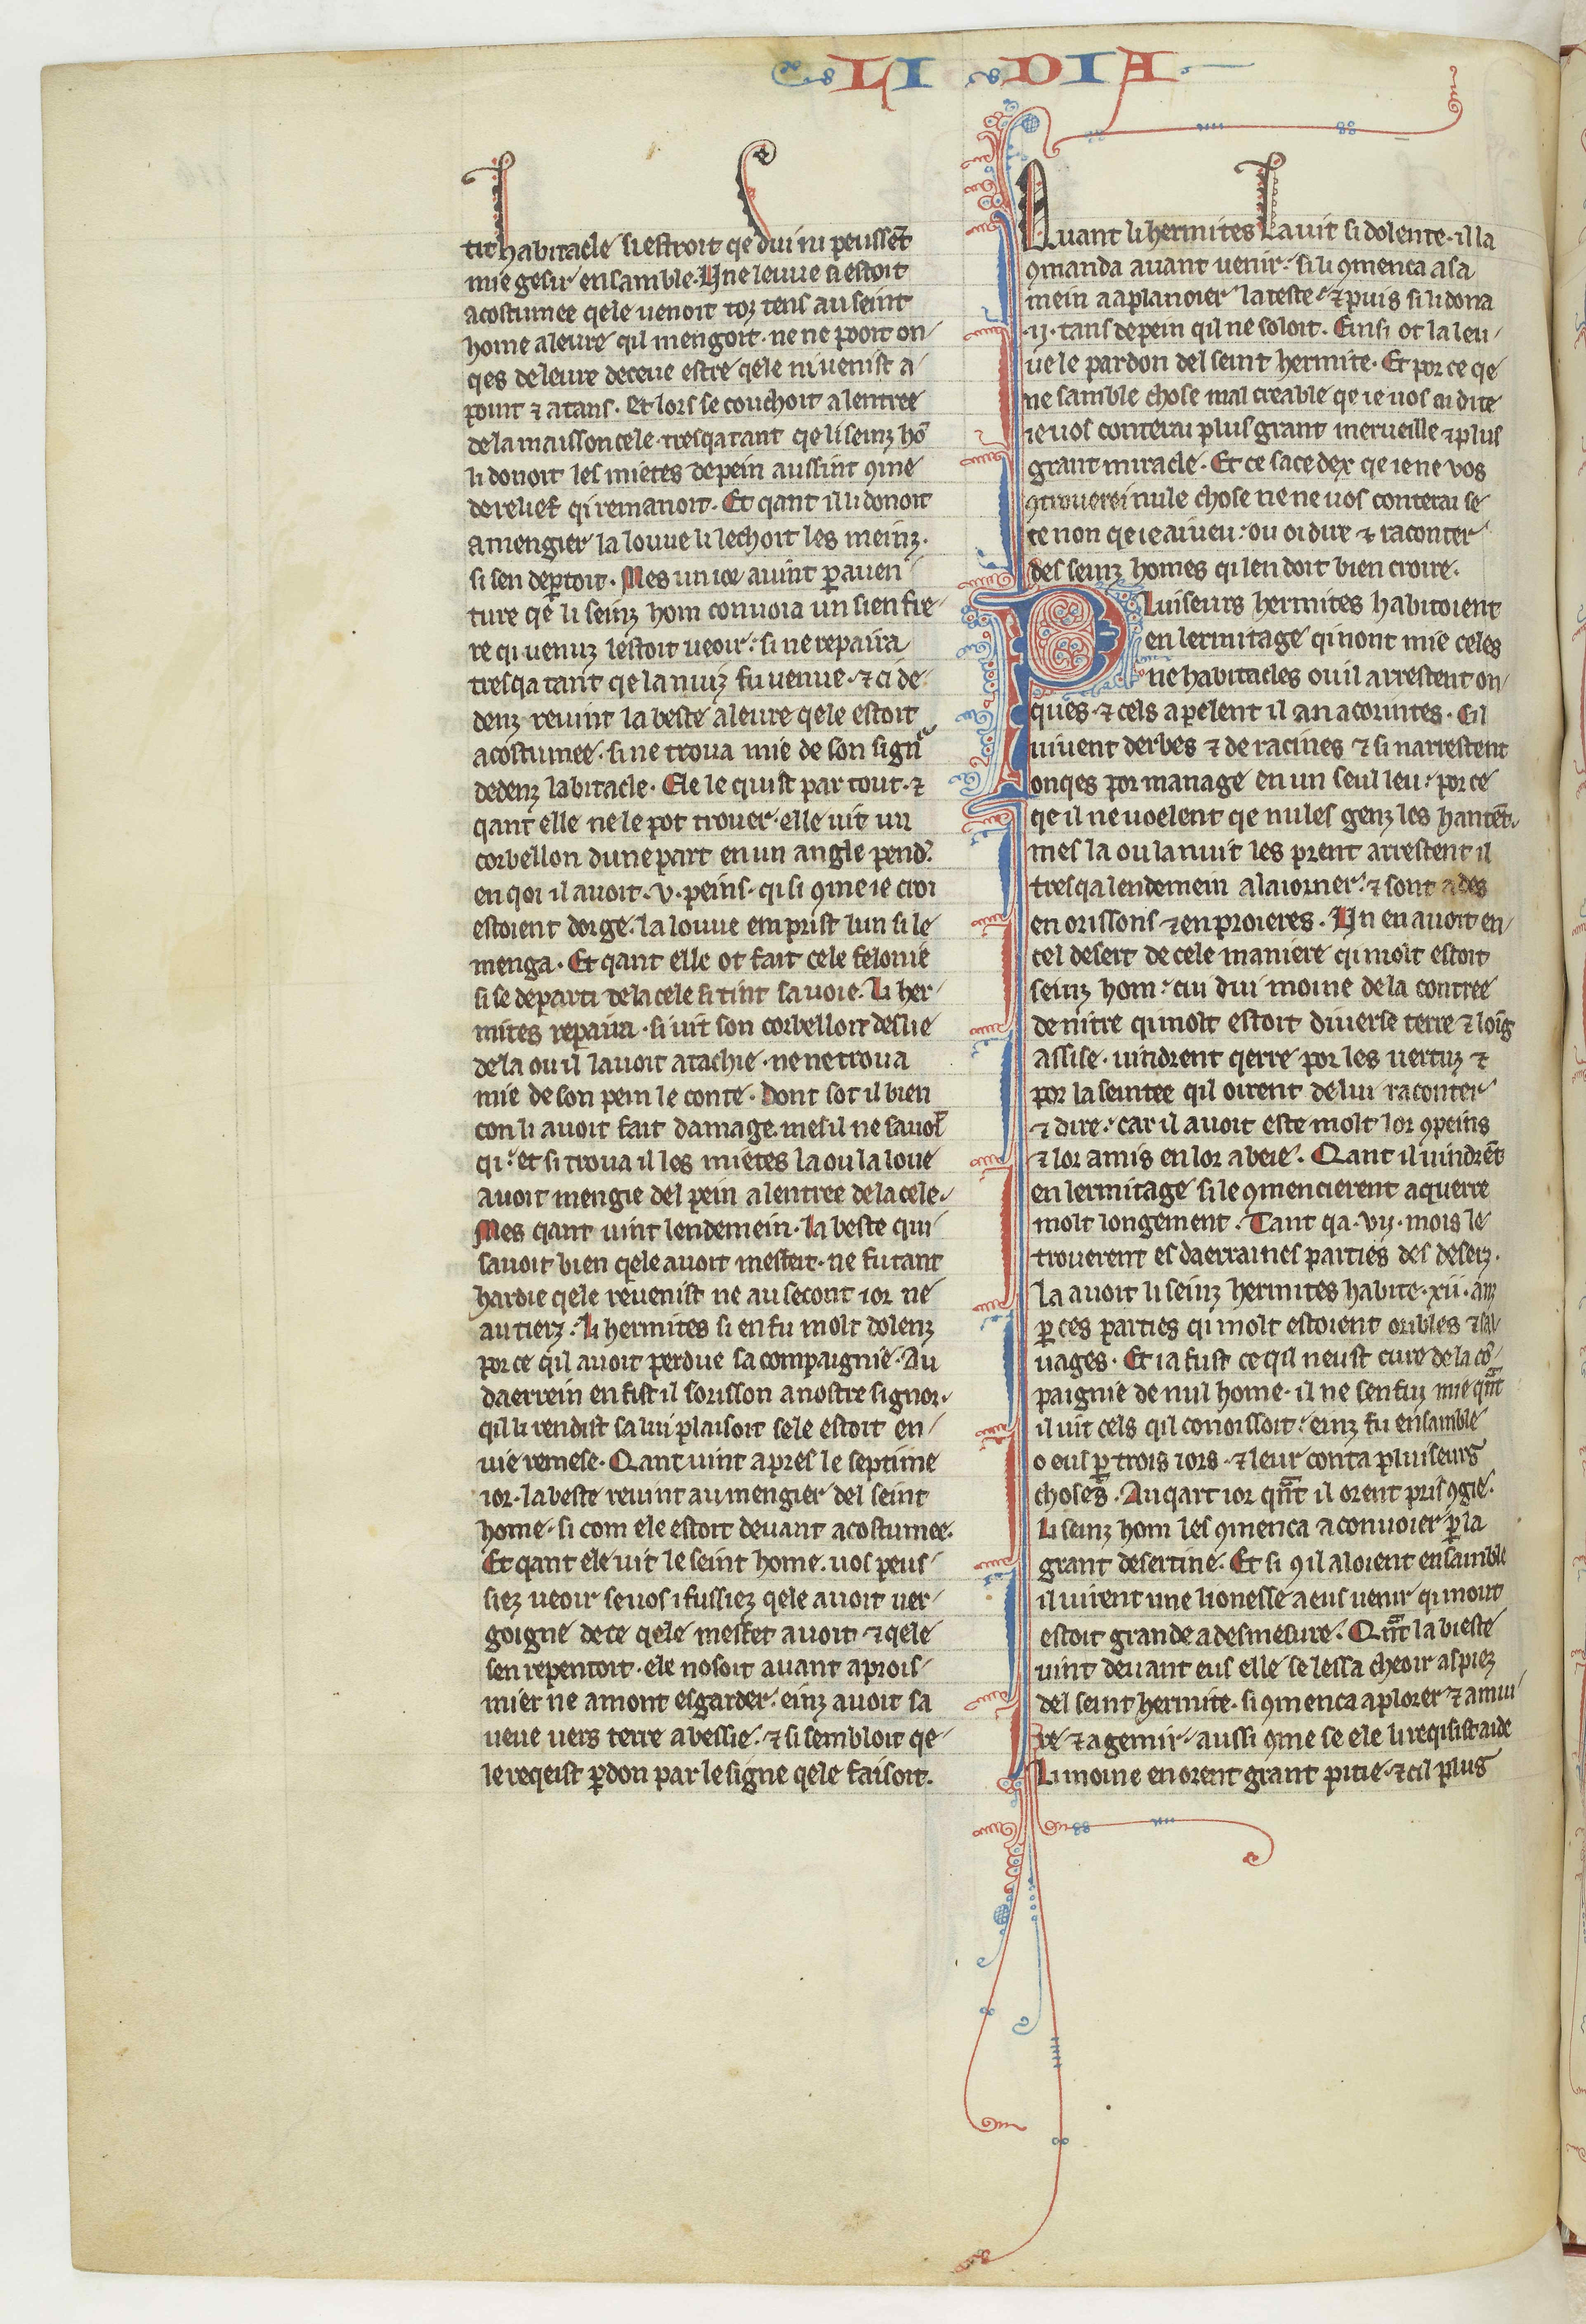 LI DIA
tit habitacle si estroit qe dui ni peussēt
mie gesir ensamble. Une leuue si estoit
acostumee qele uenoit toz tens au seint
home a leure qil mengoit. ne ne pooit on
qes de leure deceue estre qele ni uenist a
point ⁊ a tans. Et lors se couchoit a lentree
de la maisson cele. tresqa tant qe li seinz hō
li donoit les mietes de pein aussint ꝯme
de relief qi remanoit. Et qant il li donoit
a mengier la louue li lechoit les meinz.
si sen deꝑtoit. Mes un ior auint ꝑ auen
ture qe li seinz hom conuoia un sien fre
re qi uenuz lestoit ueoir. si ne repaira
tresqa tant qe la nuiz fu uenue. ⁊ ci de
denz reuint la beste a leure qele estoit
acostumee. si ne troua mie de son signᵉ
dedenz labitacle. Ele le quist par tout. ⁊
qant elle ne le pot trouer. elle uit un
corbellon dune part en un angle pend̾
en qoi il auoit .v. peins. qi si ꝯme ie croi
estoient dorge. la louue em prist lun si le
menga. Et qant elle ot fait cele felonie
si se departi de la cele si tint sa uoie. Li her
mites repaira. si uit son corbellon deslie
de la ou il lauoit atachie. ne ne troua
mie de son pein le conte. Dont sot il bien
con li auoit fait damage. mes il ne sauoit
qi. et si troua il les mietes la ou la loue
auoit mengie del pein a lentree de la cele.
Mes qant uint lendemein. la beste qui
sauoit bien qele auoit messeit. ne fu tant
hardie qele reuenist ne au secont ior ne
au tierz. Li hermites si en fu molt dolenz
por ce qil auoit perdue sa compaignie. Au
daerrein en fist il sorisson a nostre signor.
qil li rendist sa lui plaisoit sele estoit en
uie remese. Qant uint apres le septime
ior. la beste reuint au mengier del seint
home. si com ele estoit deuant acostumee.
Et qant ele uit le seint home. uos peus
siez ueoir se uos i fussiez qele auoit uer
goigne de ce qele mesfet auoit ⁊ qele
sen repentoit. ele nosoit auant aprois
mier ne amont esgarder. einz auoit sa
ueue uers terre abessie. ⁊ si sembloit qe
le reqeist ꝑdon par le signe qele faisoit.
Quant li hermites la uit si dolente. il la
ꝯmanda auant uenir. si li ꝯmenca a sa
mein a aplanoier la teste. ⁊ puis si li dona
.ij. tans de pein qil ne soloit. Einsi ot la leu
ue le pardon del seint hermite. Et por ce qe
ne samble chose mal creable qe ie uos ai dite
ie uos conterai plus grant merueille ⁊ plus
grant miracle. Et ce sace dex qe ie ne vos
ꝯtrouerei nule chose ne ne uos conterai se
ce non qe ie ai ueu. ou oi dire ⁊ raconter
des seinz homes qi len doit bien croire.
Pluiseurs hermites habitoient
en lermitage qi nont mie celes
ne habitacles ou il arrestent on
ques. ⁊ cels apelent il anacorintes. Cil
uiuent derbes ⁊ de racines ⁊ si narrestent
onqes por manage en un seul leu. por ce
qe il ne uoelent qe nules genz les hantēt.
mes la ou la nuit les prent arrestent il
tresqa lendemein a laiorner. ⁊ sont ades
en orissons ⁊ en proieres. Un en auoit en
cel desert de cele maniere qi molt estoit
seinz hom. cui dui moine de la contree
de nitre qi molt estoit diuerse terre ⁊ loīg
assise. uindrent qerre por les uertuz ⁊
por la seintee qil oirent de lui raconter
⁊ dire. car il auoit este molt lor ꝯpeins
⁊ lor amis en lor abeie. Qant il uindrēt
en lermitage si le ꝯmencierent a querre
molt longement. Tant qa .vij. mois le
trouerent es daerraines parties des deserz.
La auoit li seinz hermites habite .xii. anz
ꝑ ces parties qi molt estoient oribles ⁊ sal
uages. Et ia fust ce qil neust cure de la cō
paignie de nul home. il ne sen fuiz mie qnᵃt
il uit cels qil conoissoit. einz fu ensamble
o eus ꝑ trois iors. ⁊ leur conta pluiseurs
choses. Au qart ior qnᵃt il orent pris ꝯgie.
Li seinz hom les ꝯmenca a conuoier ꝑ la
grant desertine. Et si ꝯ il aloient ensamble
il uirent une lionesse a eus uenir qi mout
estoit grande a desmesure. Qnᵃt la bieste
uint deuant eus elle se lessa cheoir as piez
del seint hermite. si ꝯmenca a plorer ⁊ a mui
re ⁊ a gemir. aussi ꝯme se ele li reqisist aide
Li moine en orent grant pitie. ⁊ cil plus